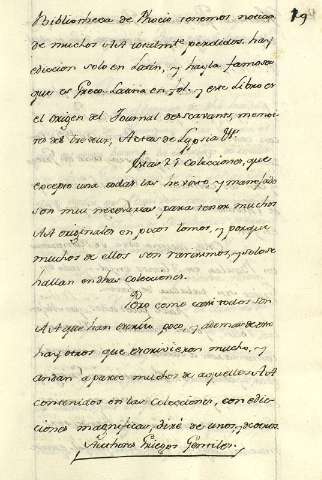 79
Bibliotheca de Phocio tenemos noticia
de muchos AA totalmte perdidos. hay
ediccion solo en Latin, y hayla famosa
que es Greco-Latina en fol. y este Libro es
el origen del Journal des Savants, memo
rias de Trevoux, Actas de Lypsia &c.
Estas 25 colecciones, que
excepto una todas las he visto, y manejado
son mui necesarias para tener muchos
AA originales en pocos tomos, y porque
muchos de ellos son rarissimos, y solo se
hallan en dhas colecciones.
Pero como casi todos son
AA que han escrito poco, y ademas de esto
hay otros que escrivieron mucho, y
andan à parte muchos de aquellos AA
contenidos en las Colecciones, con edic-
ciones magnificas, diré de unos, y de otros.
Authores Griegos Gentiles.